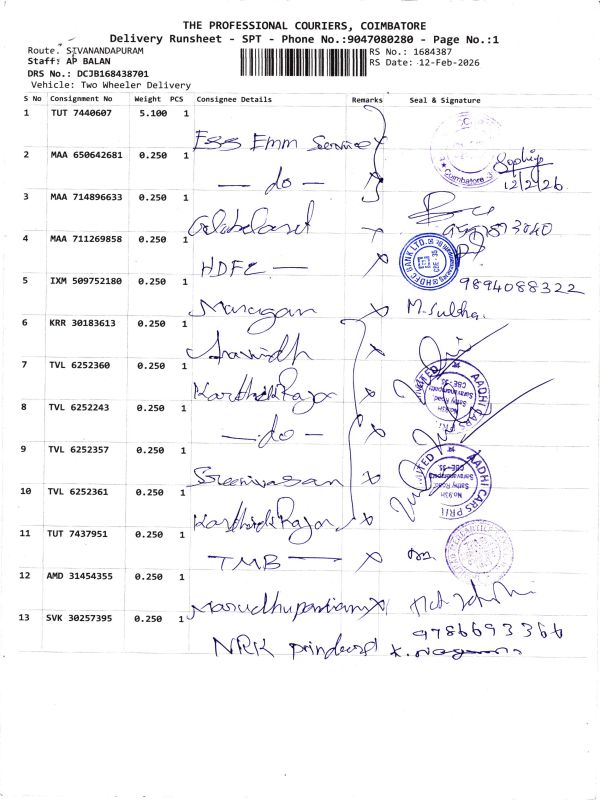 THE PROFESSIONAL COURIERS, COIMBATORE
Delivery Runsheet - SPT - Phone No.:9047080280 - Page No.:1
Route. SIVANANDAPURAM
RS No.: 1684387
Staff: AP BALAN
RS Date: 12-Feb-2026
DRS No.: DCJB168438701
Vehicle: Two Wheeler Delivery
S No Consignment No Weight PCS Consignee Details Remarks Seal & Signature
1 TUT 7440607 5.100 1
Ess Emm Service
2 MAA 650642681 0.250 1
— do — Coimbatore
12/2/26
3 MAA 714896633 0.250 1
4 MAA 711269858 0.250 1
HDFC — HDFC BANK LTD.
5 IXM 509752180 0.250 1 9894088322
Murugan M. Sulkha.
6 KRR 30183613 0.250 1
Aravindh
7 TVL 6252360 0.250 1
Karthick Raja AADHI CARS
8 TVL 6252243 0.250 1
— do —
9 TVL 6252357 0.250 1
Sreenivasan AADHI CARS
10 TVL 6252361 0.250 1
Karthick Raja
11 TUT 7437951 0.250 1
TMB —
12 AMD 31454355 0.250 1
Marudhupandiam
13 SVK 30257395 0.250 1 9786693366
NRK